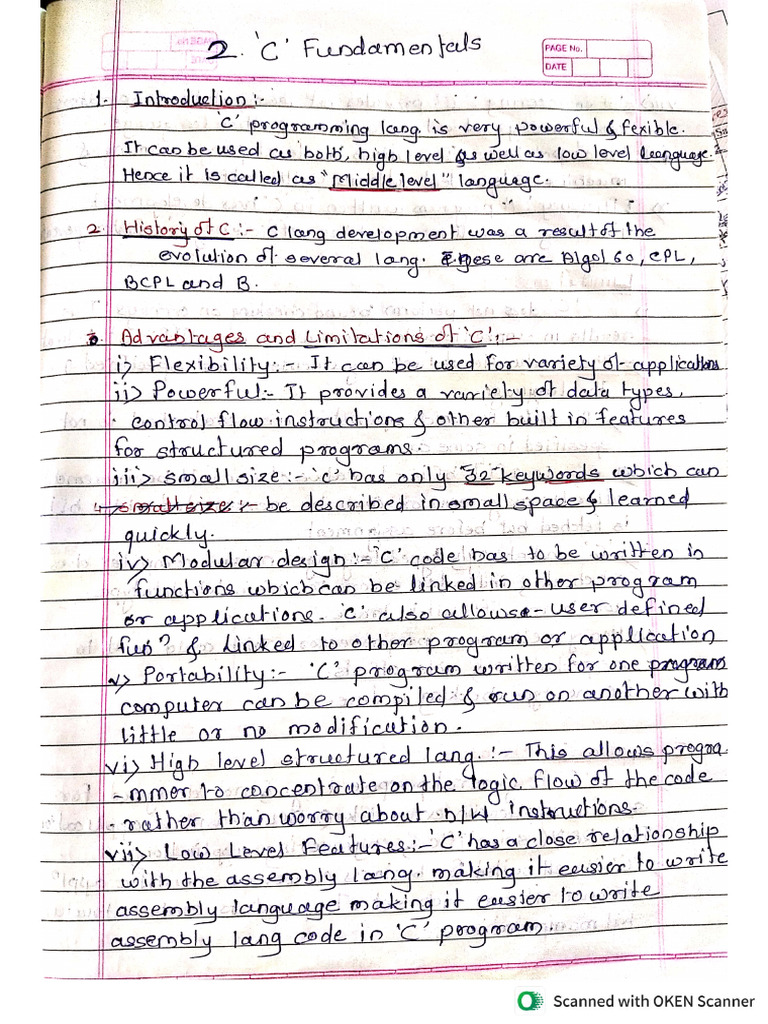 2. 'C' Fundamentals
PAGE No.
DATE
1. Introduction :-
'C' programming lang is very powerful & fexible.
It can be used as both, high level & as well as low level language.
Hence it is called as "Middle level" language.
2. History of C :- C lang development was a result of the
evolution of several lang. These are Algol 60, CPL,
BCPL and B.
3. Advantages and Limitations of 'C' :-
i) Flexibility :- It can be used for variety of applications
ii) Powerful :- It provides a variety of data types,
control flow instructions & other built in features
for structured programs.
iii) small size :- 'C' has only "32" keywords which can
4) small size :- be described in small space & learned
quickly.
iv) Modular design :- 'C' code has to be written in
functions which can be linked in other program
or applications. 'C' also allows - user defined
fun? & linked to other program or application
v) Portability :- 'C' program written for one program
computer can be compiled & run on another with
little or no modification.
vi) High level structured lang. :- This allows progra
-mmer to concentrate on the logic flow of the code
rather than worry about h/w instructions.
vii) Low Level Features :- 'C' has a close relationship
with the assembly lang. making it easier to write
assembly language making it easier to write
assembly lang code in 'C' program
Scanned with OKEN Scanner